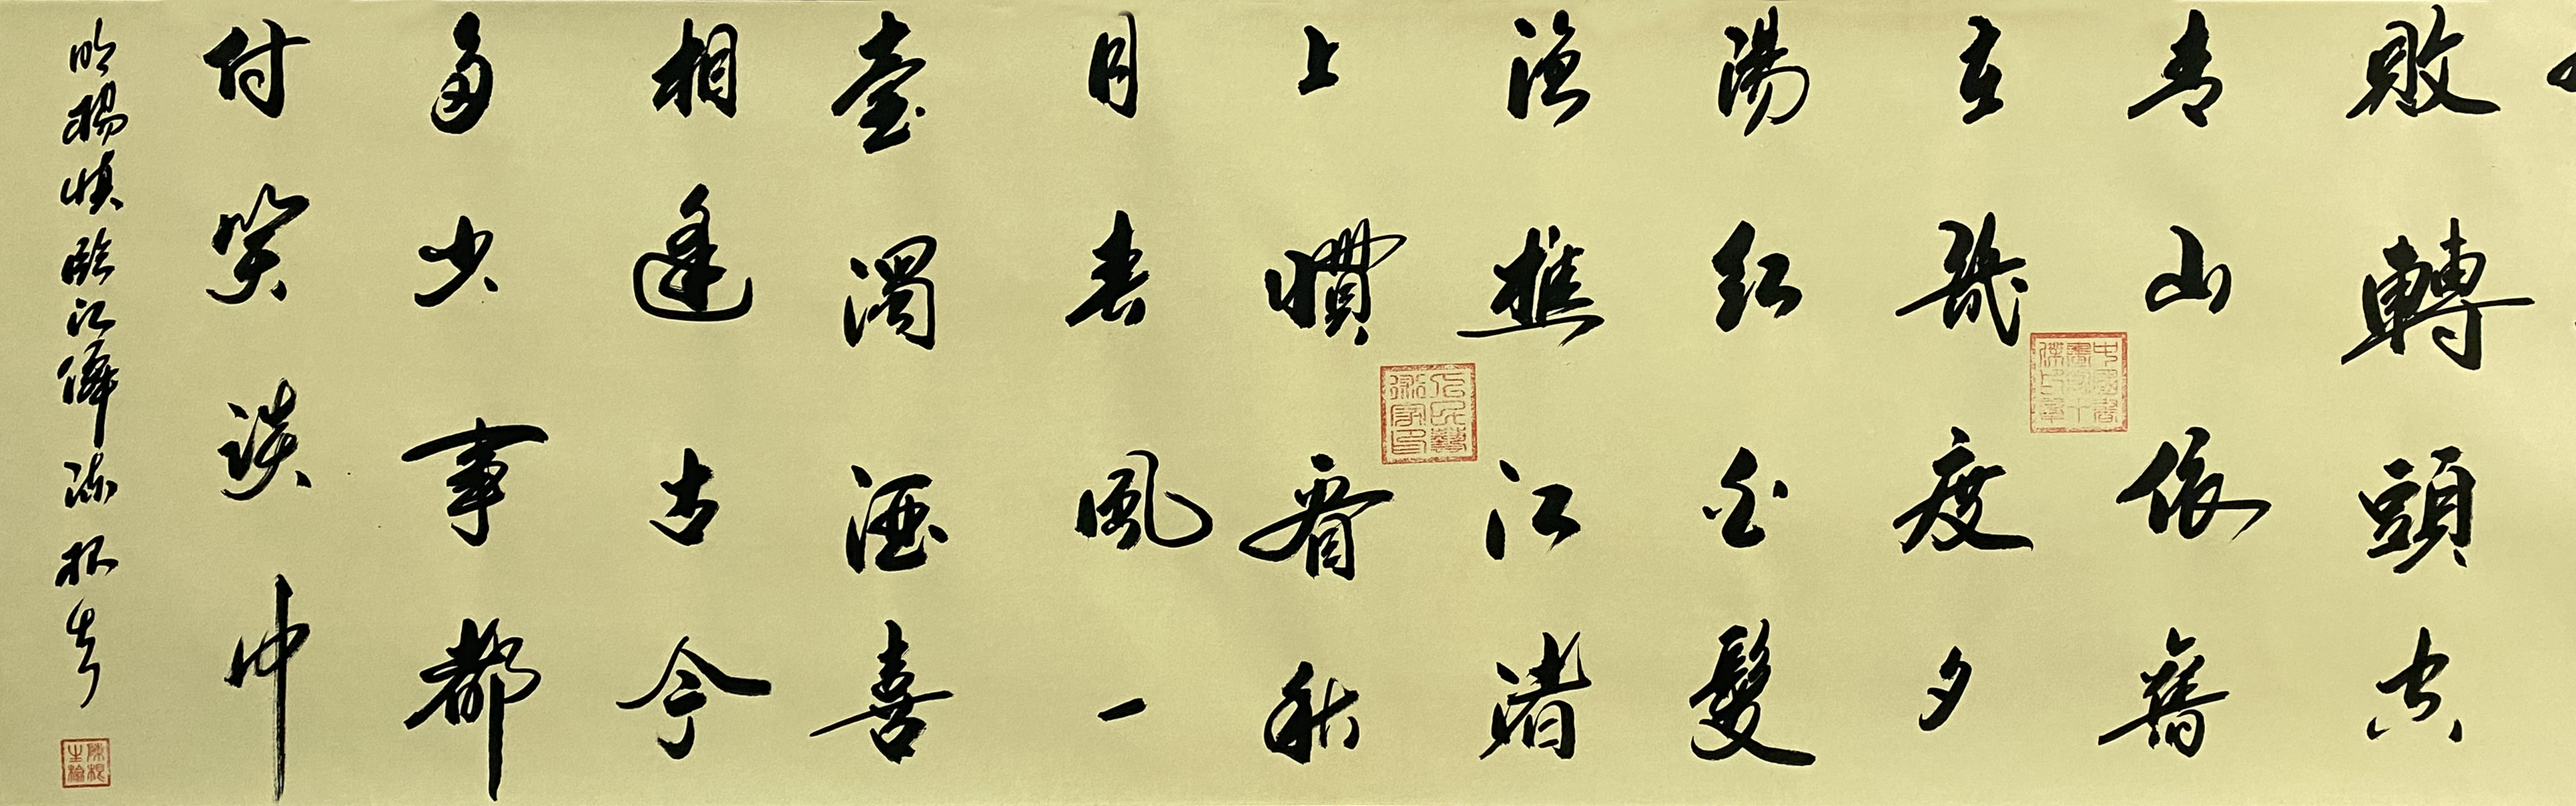 敗轉頭空
青山依舊
在幾度夕
陽紅白髮
漁樵江渚
上慣看秋
月春風一
壺濁酒喜
相逢古今
多少事都
付笑談中
明楊慎臨江僊陳根書
人民藝術家印